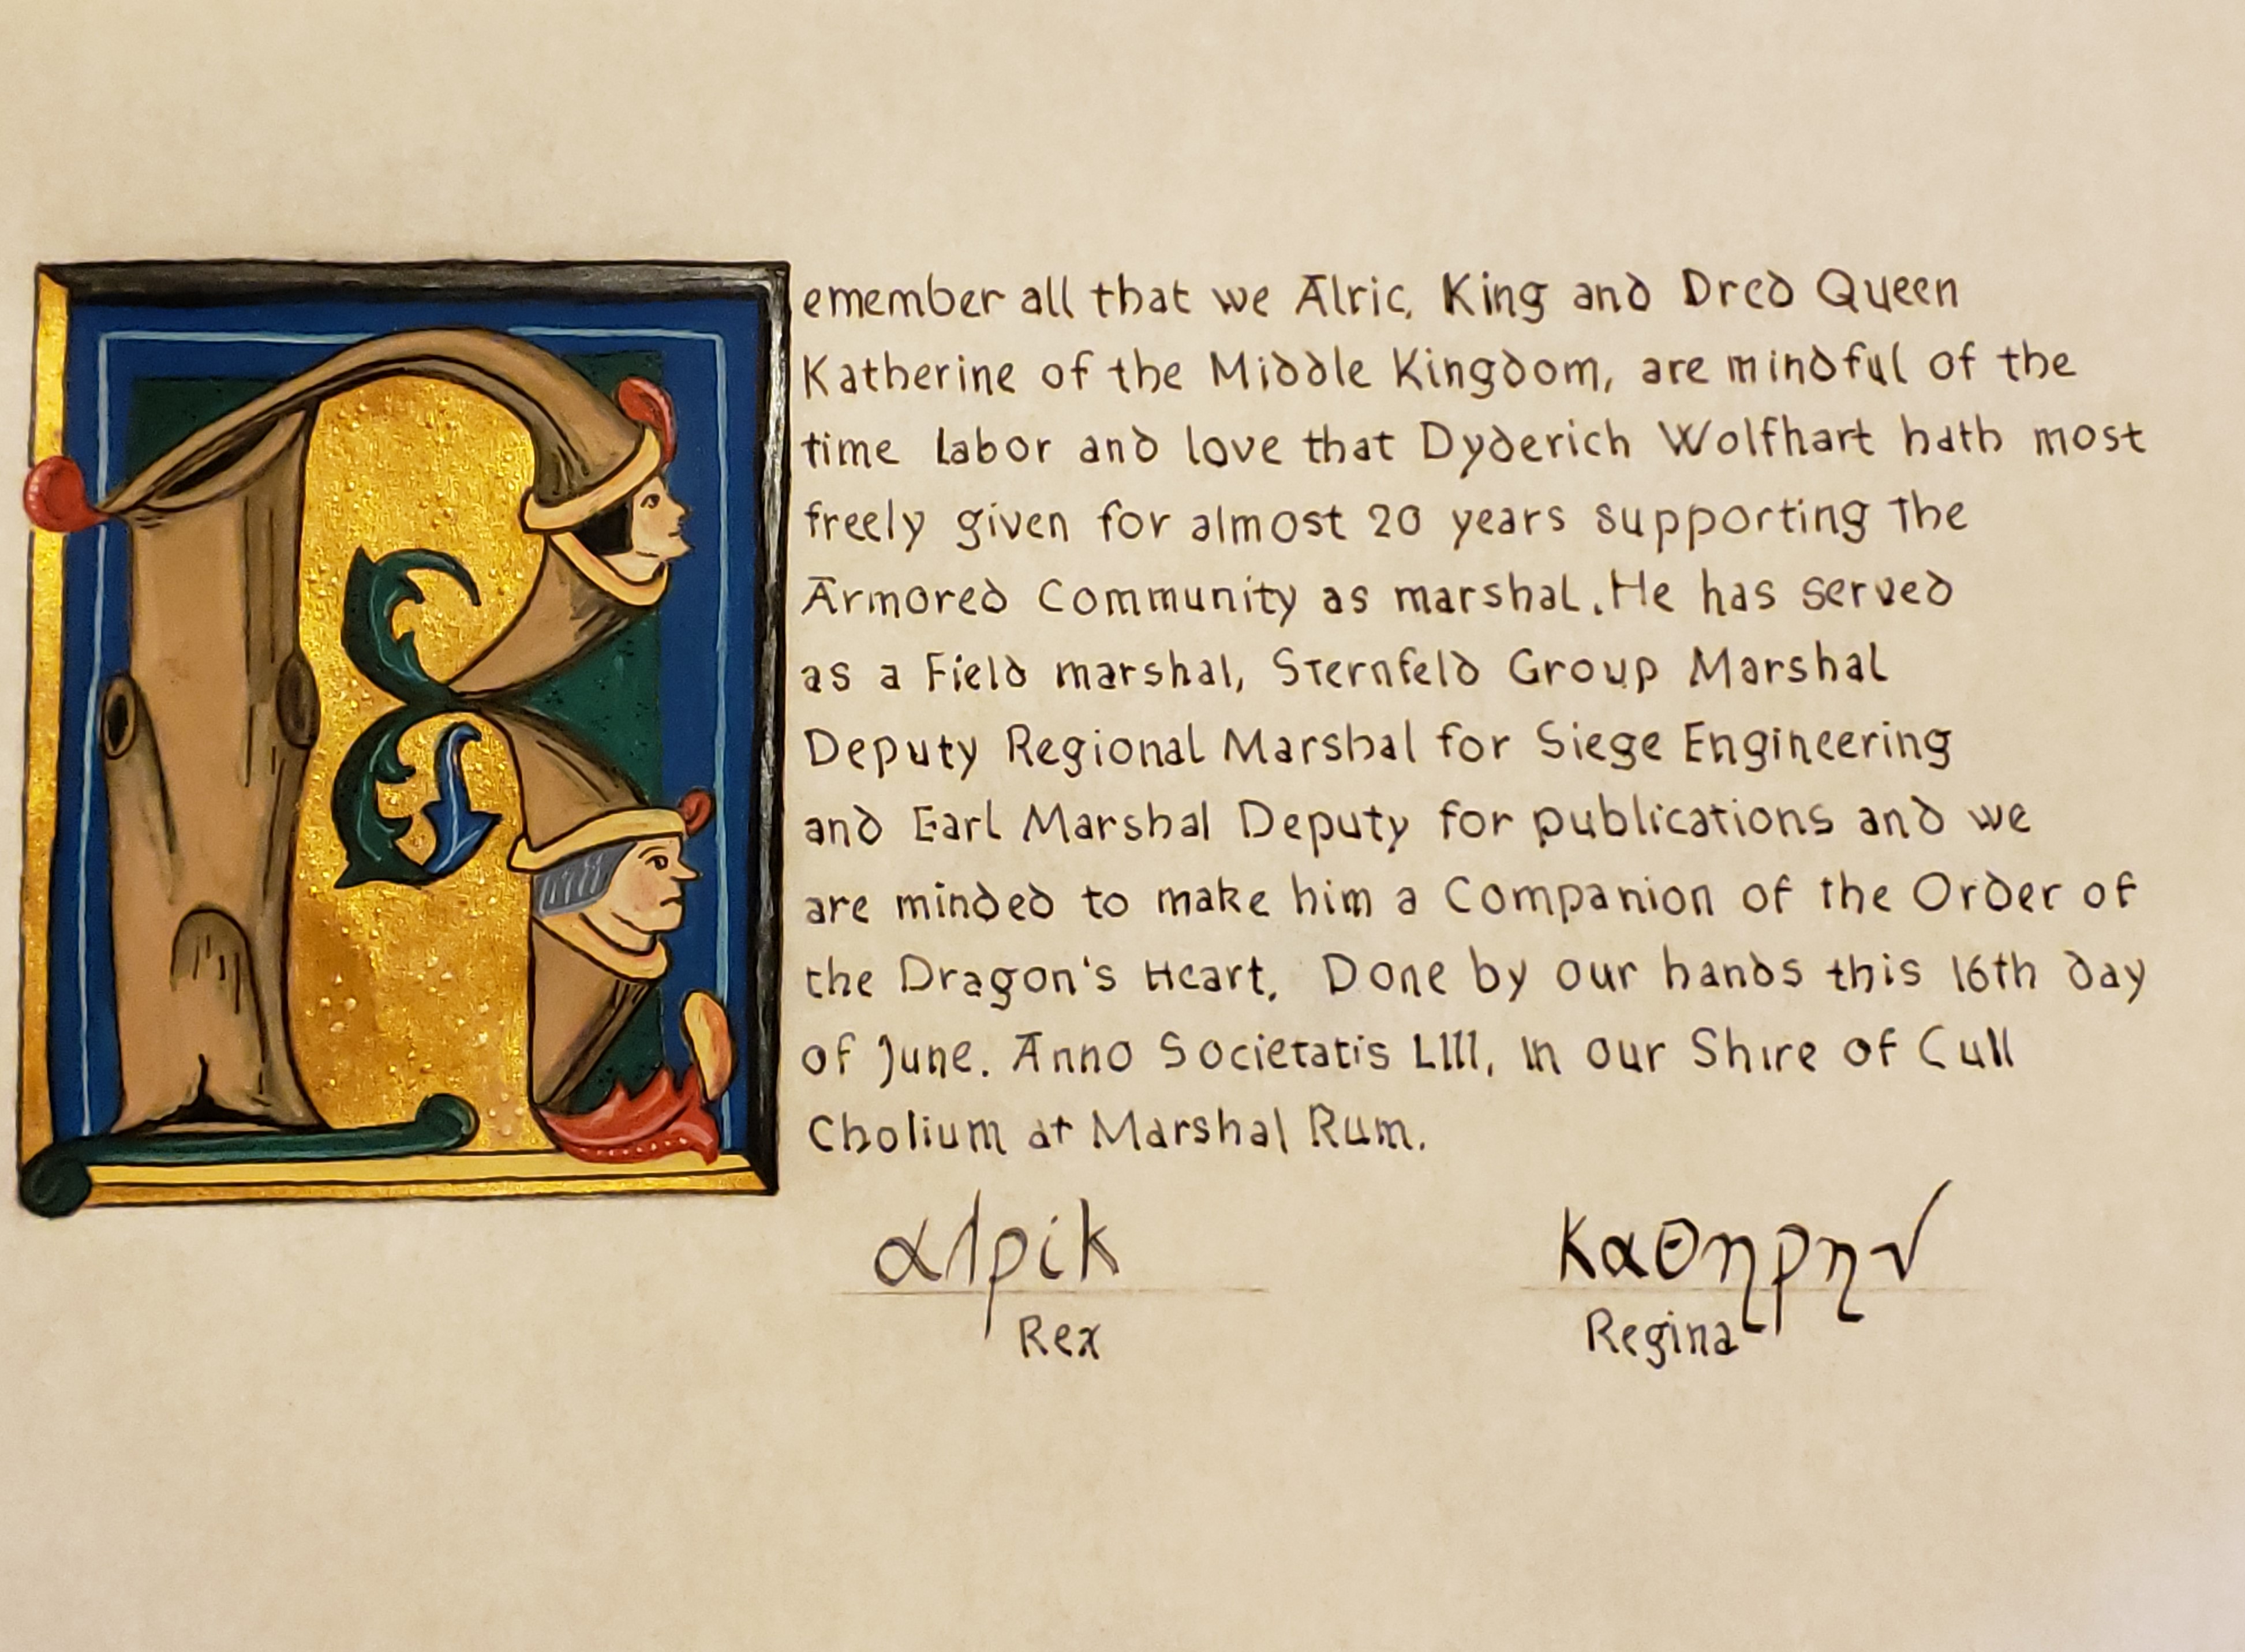 Remember all that we Alric, King and Dred Queen
Katherine of the Middle Kingdom, are mindful of the
time labor and love that Dyderich Wolfhart hath most
freely given for almost 20 years supporting the
Armored Community as marshal. He has served
as a Field marshal, Sternfeld Group Marshal
Deputy Regional Marshal for Siege Engineering
and Earl Marshal Deputy for publications and we
are minded to make him a Companion of the Order of
the Dragon's Heart. Done by our hands this 16th day
of June. Anno Societatis LIII, in our Shire of Cull
Cholium at Marshal Rum.
αlρik Καθηρην
Rex Regina